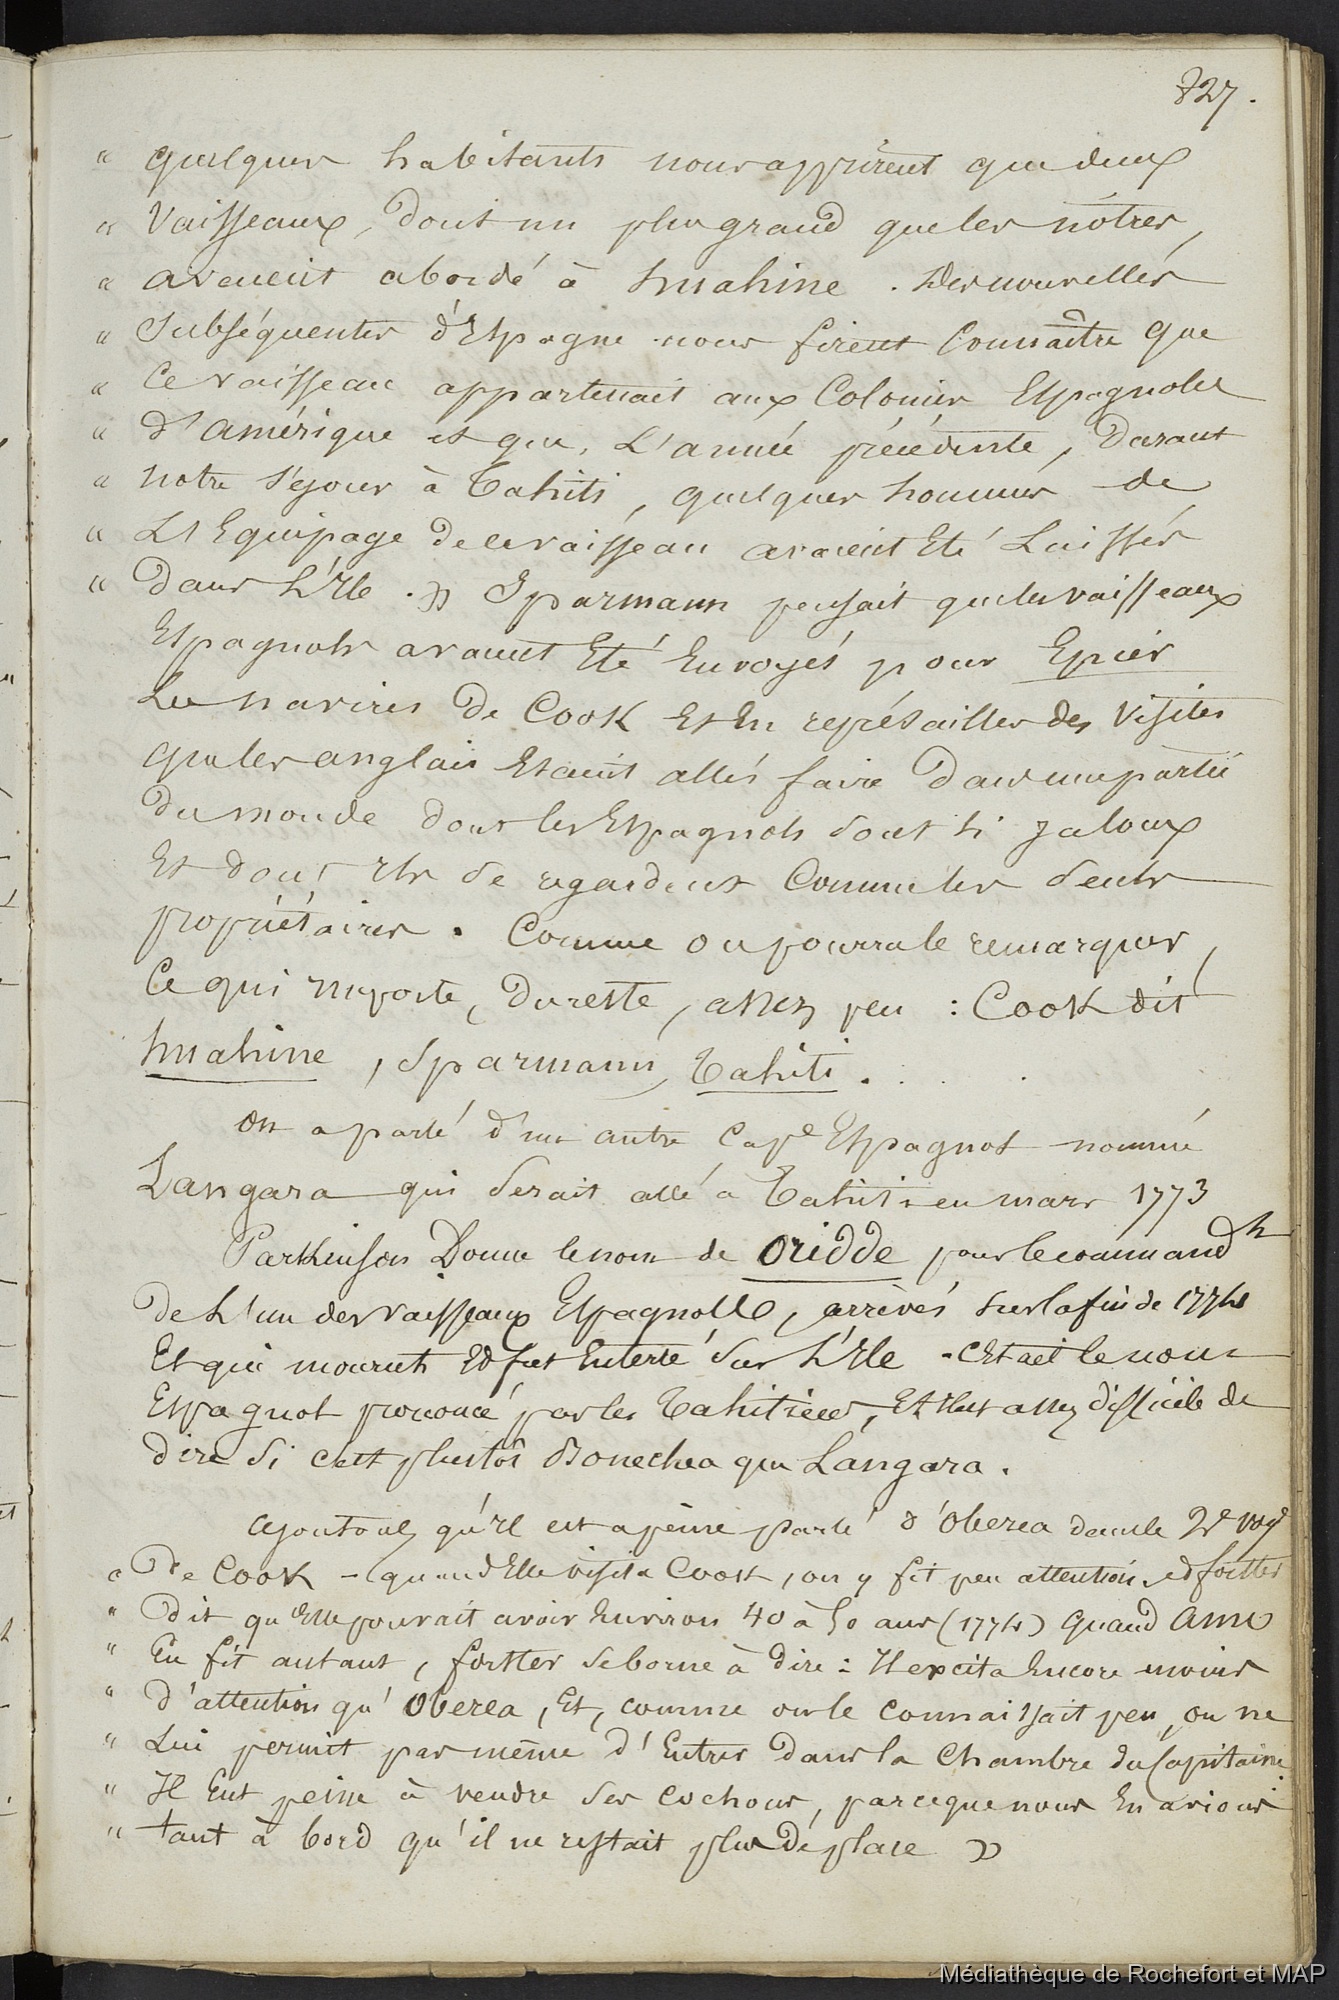 827.
" quelques habitants nous apprirent que deux
" Vaisseaux, dont un plus grand que les nôtres,
" avaient abordé à huahine. Des nouvelles
" Subséquentes d'Espagne nous firent Connaître que
" Ce vaisseau appartenait aux Colonies Espagnoles
" d'amérique et que, L'année précédente, Durant
" notre séjour à Tahiti, quelques hommes de
" L'Equipage de ce vaisseau avaient Eté Laissés
" Dans L'Ile. » Sparmann pensait que les vaisseaux
Espagnols avaient Eté Envoyés pour Epier
Les navires de Cook Et En représailles des visites
que les anglais Etaient allés faire Dans une partie
Du monde dont les Espagnols sont si jaloux
Et dont Ils se regardent Comme les seuls
propriétaires. Comme on pourra le remarquer,
Ce qui importe, Du reste, assez peu : Cook dit
huahine, Sparmann, Tahiti.
On a parlé d'un autre Cape Espagnol nommé
Langara qui serait allé a Tahiti en mars 1773
Parkinson Donne le nom de Oridde pour le commandt
De L'un des vaisseaux Espagnols, arrivés sur la fin de 1774
Et qui mourut Et fut Enterré sur L'Ile. C'Etait le nom
Espagnol prononcé par les Tahitiens, Et Il est assez difficile de
dire si c'est plustôt Bonechea que Langara.
ajoutons qu'Il est apeine parlé d'Oberea dans le 2e voye
" De Cook - quand Elle visita Cook, on y fit peu attention, et forster
" Dit qu'Elle pouvait avoir Environ 40 à 50 ans (1774) Quand Amo
" En fit autant, forster se borne à dire : Il excita Encore moins
" d'attention qu'Oberea, Et, comme on le connaissait peu, on ne
" Lui permit pas même d'Entrer Dans la Chambre du Capitaine.
" Il Eut peine à vendre ses cochons, parceque nous En avions
" tant à bord qu'il ne restait plus de place »
Médiathèque de Rochefort et MAP